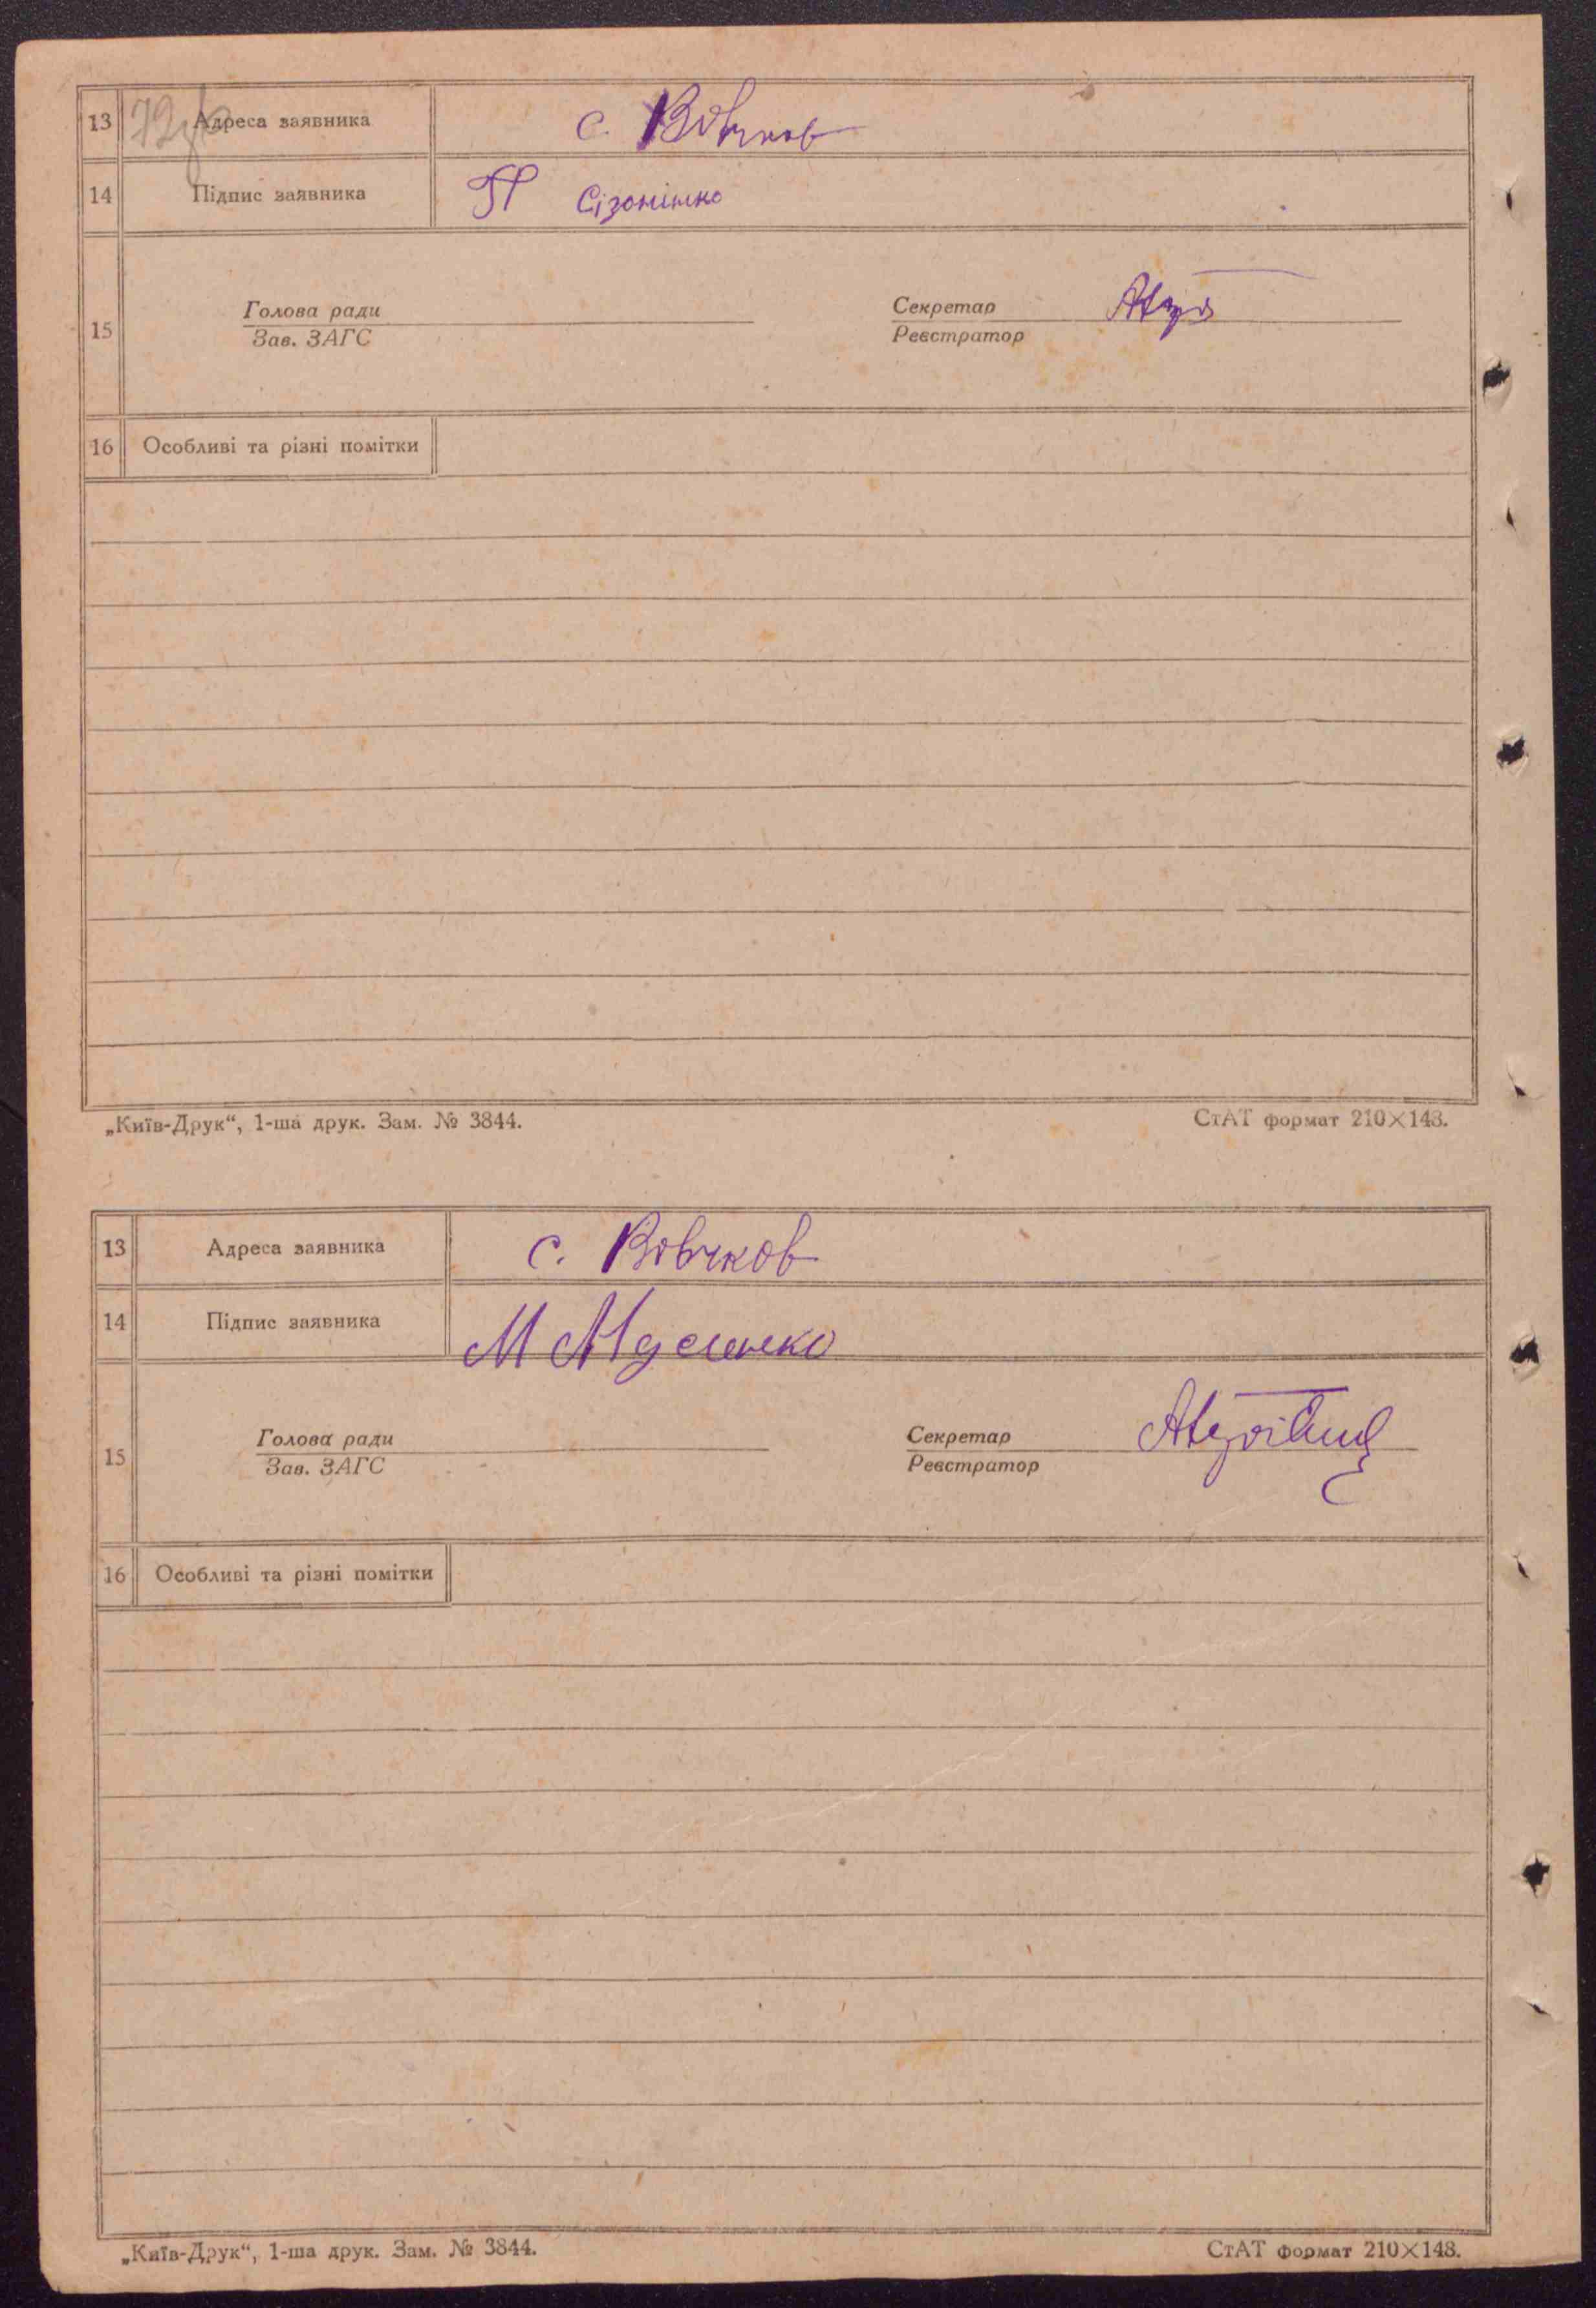 13 Адреса заявника с. Вовчков
14 Підпис заявника П Сізонінко
Голова ради Секретар
15
Зав. ЗАГС Реєстратор
16 Особливі та різні помітки
„Київ-Друк“, 1-ша друк. Зам. № 3844. СтАТ формат 210×148.
13 Адреса заявника с. Вовчков
14 Підпис заявника М
Голова ради Секретар
15
Зав. ЗАГС Реєстратор
16 Особливі та різні помітки
„Київ-Друк“, 1-ша друк. Зам. № 3844. СтАТ формат 210×148.